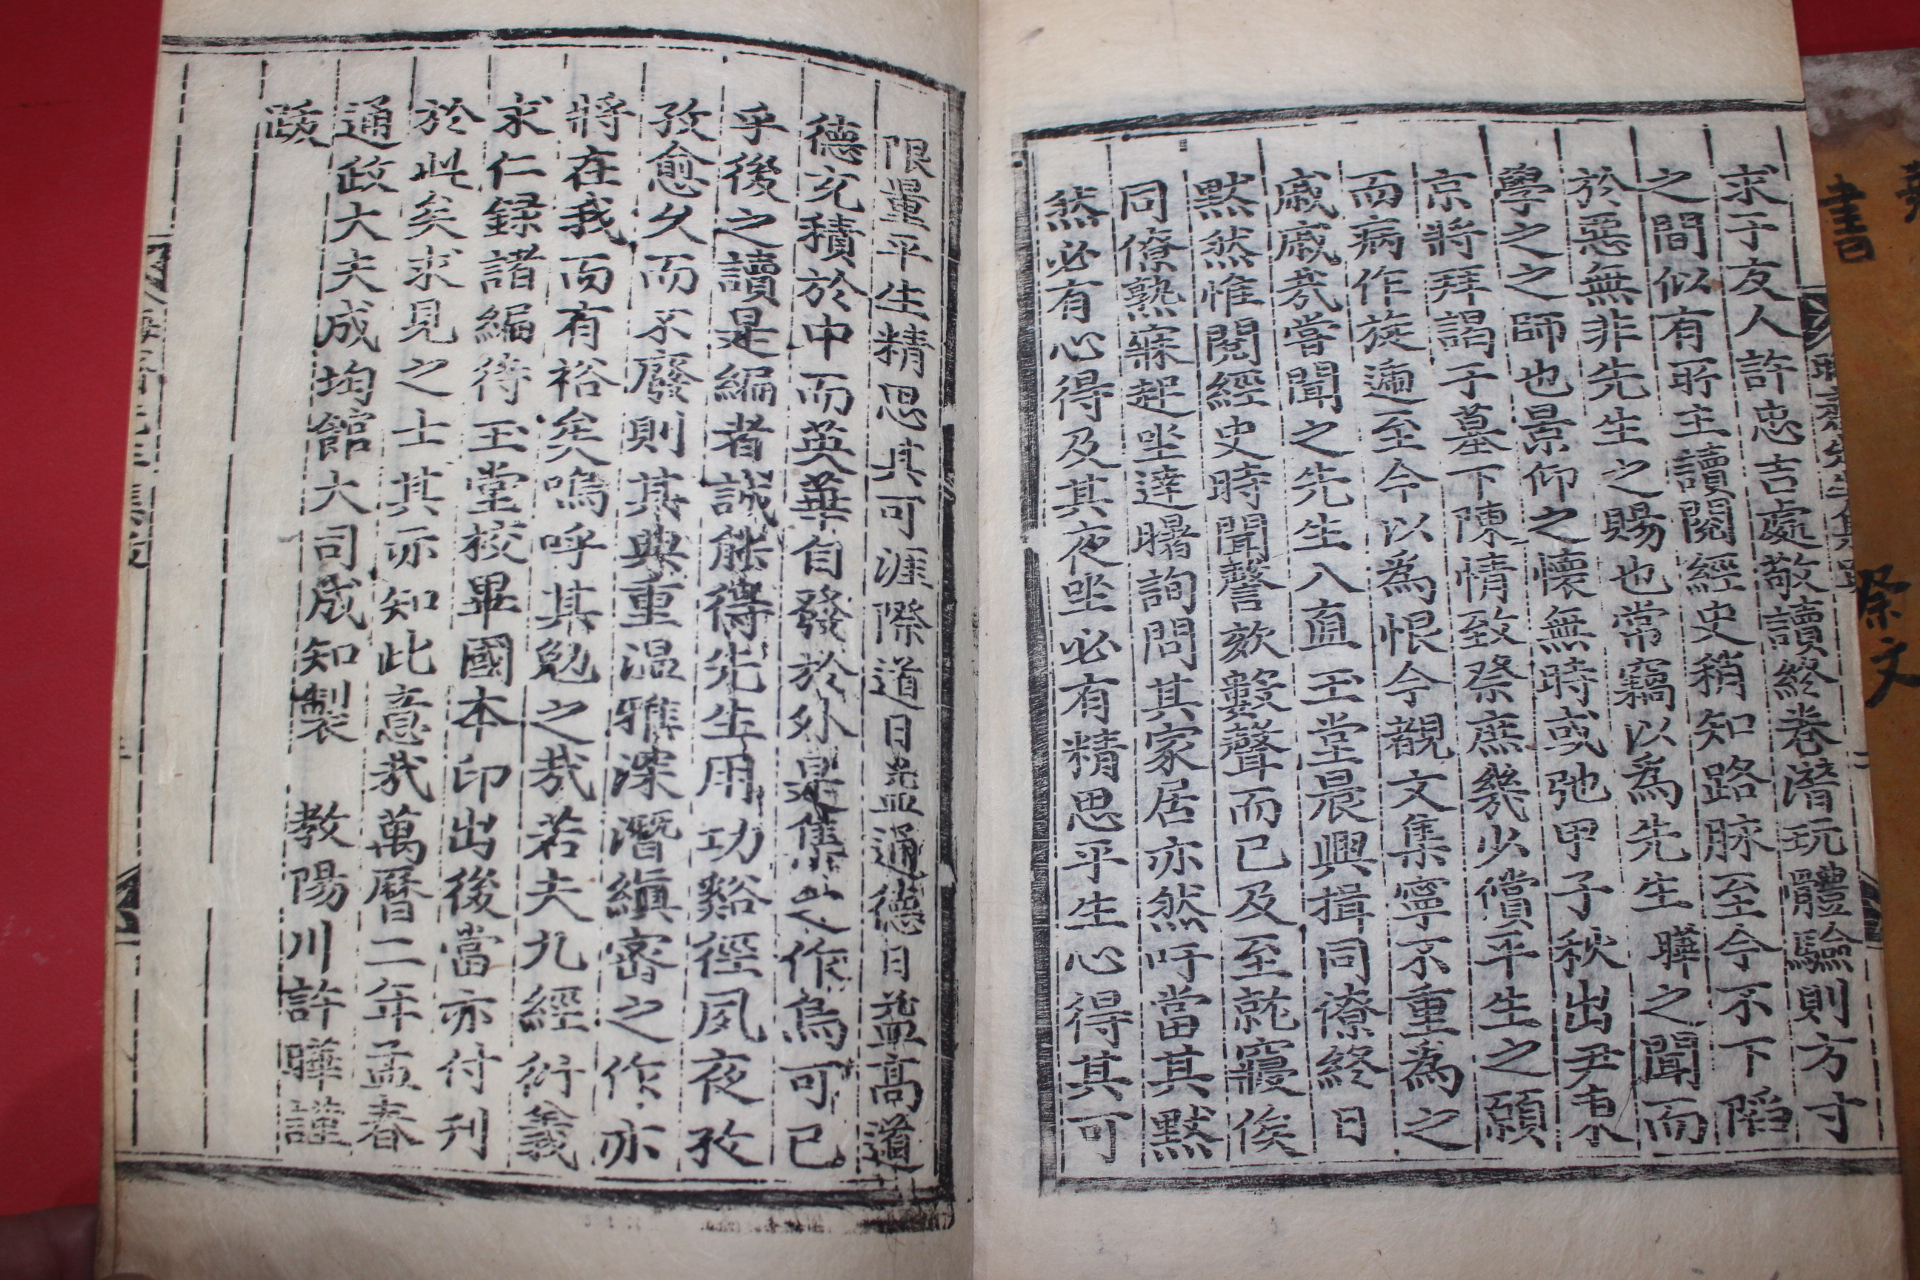 求于友人許忠吉處敬讀終卷潛玩體驗則方寸
之間似有所主讀閱經史稍知路脉至今不下陷
於惡無非先生之賜也常竊以為先生曄之聞而
學之之師也景仰之懷無時或弛甲子秋出尹東
京將拜謁于墓下陳情致祭庶幾少償平生之願
而病作旋遞至今以為恨今觀文集寧不重為之
戚戚哉嘗聞之先生入直玉堂晨興揖同僚終日
默然惟閱經史時聞謦欬聲而已及至就寢俟
同僚熟寐起坐達曙詢問其家居亦然吁當其默
然必有心得及其夜坐必有精思平生心得其可
限量平生精思其可涯際道日益通德日益高道
德充積於中而英華自發於外是集之作烏可已
乎後之讀是編者誠能得先生用功谿徑夙夜孜
孜愈久而不廢則其典重温雅深潛縝密之作亦
將在我而有裕矣嗚呼其勉之哉若夫九經衍義
求仁録諸編待玉堂校畢國本印出後當亦付刊
於此矣求見之士其亦知此意哉萬曆二年孟春
通政大夫成均館大司成知製 教陽川許曄謹
跋
書
祭文